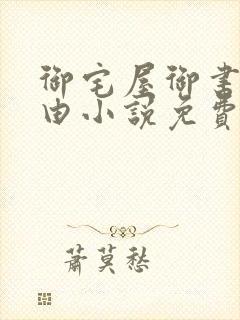 御宅屋御書
由小説免費
蕭莫愁